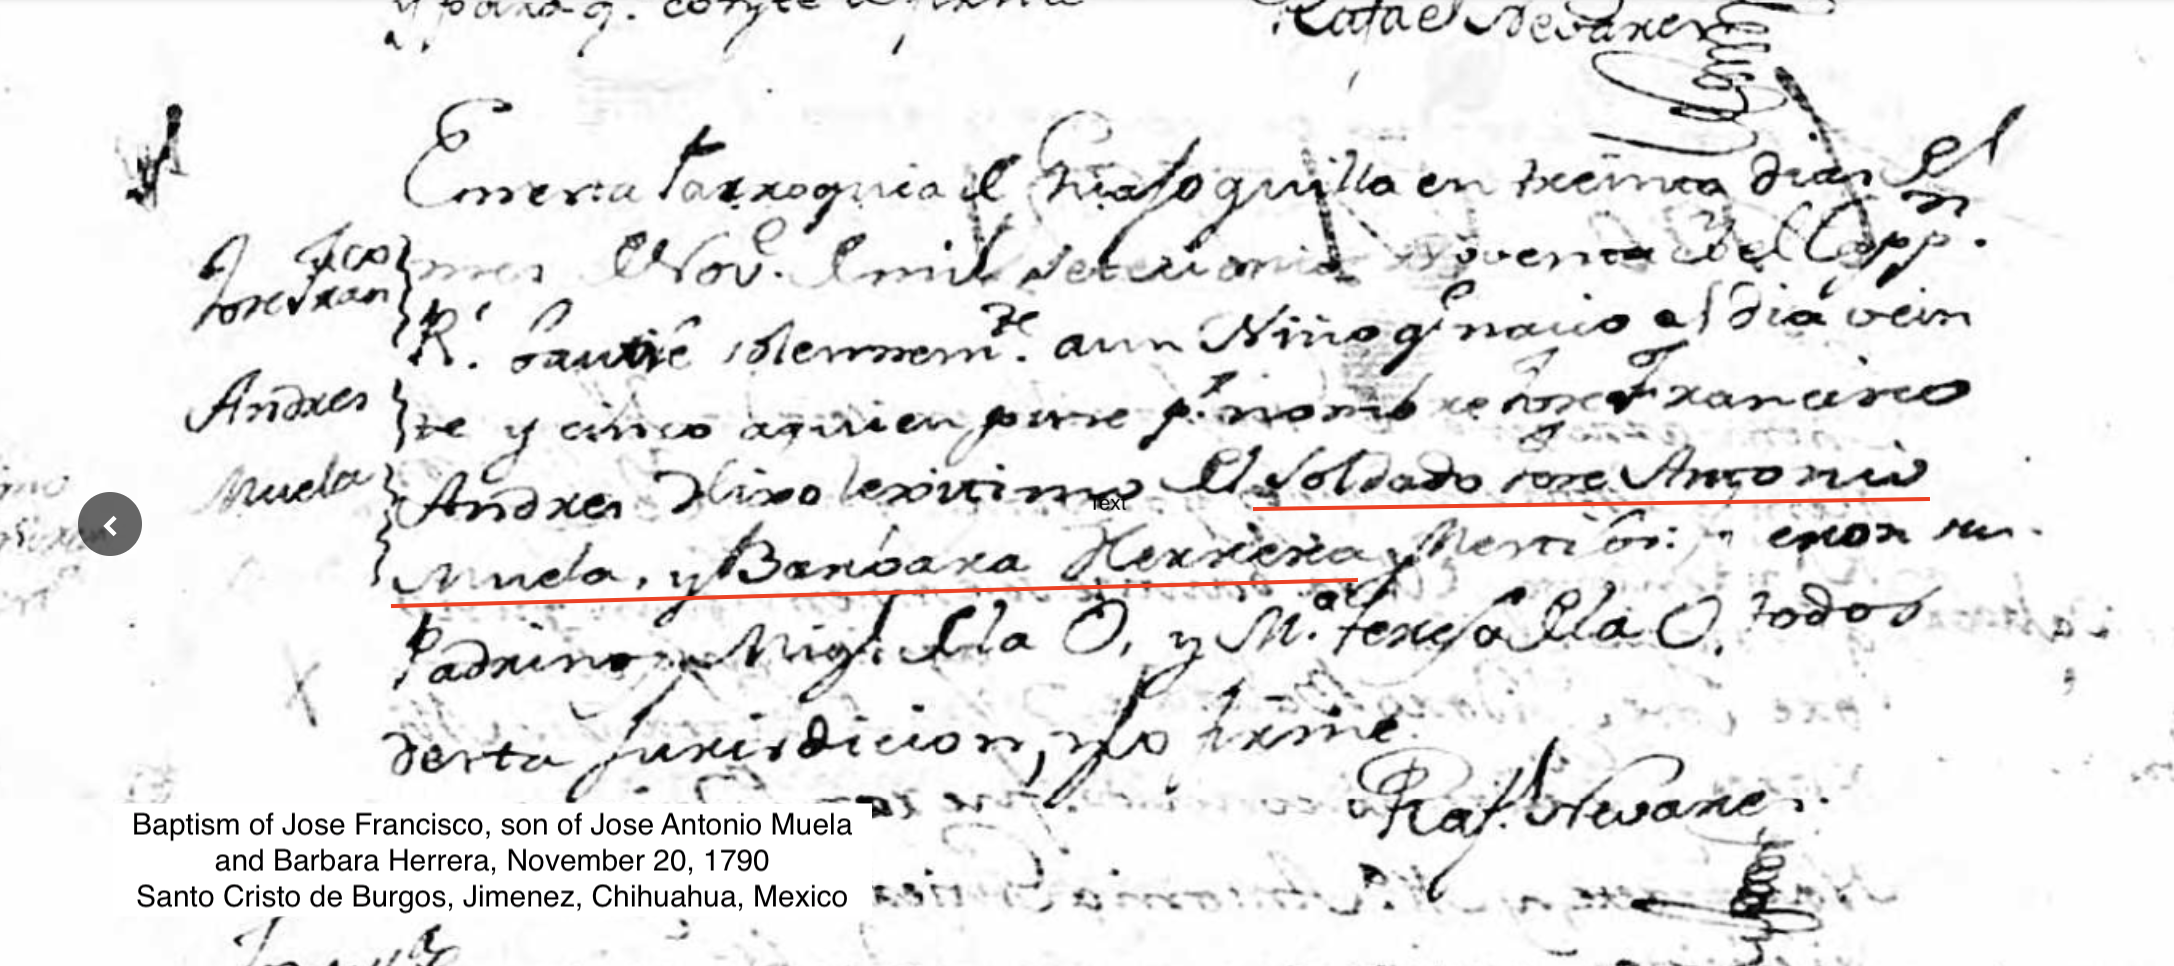 y para q. conste lo firmé
Rafael Nevares
En esta Parroquia de Guajoquilla en treinta dias del
mes de Nov.e de mil setecientos noventa el Capp.n
R.l bautizé solemnem.te a un Niño q.e nació el dia vein
te y cinco a quien puse p.r nombre Jose Francisco
Andres Hixo lexitimo del Soldado Jose Antonio
Muela, y Barbara Herrera
su
Padrinos Mig.l de la O, y M.a Teresa de la O, todos
desta Jurisdicion, y lo firmé
Raf.l Nevares.
Jose Fran.co
Andres
Muela
Text
Baptism of Jose Francisco, son of Jose Antonio Muela
and Barbara Herrera, November 20, 1790
Santo Cristo de Burgos, Jimenez, Chihuahua, Mexico